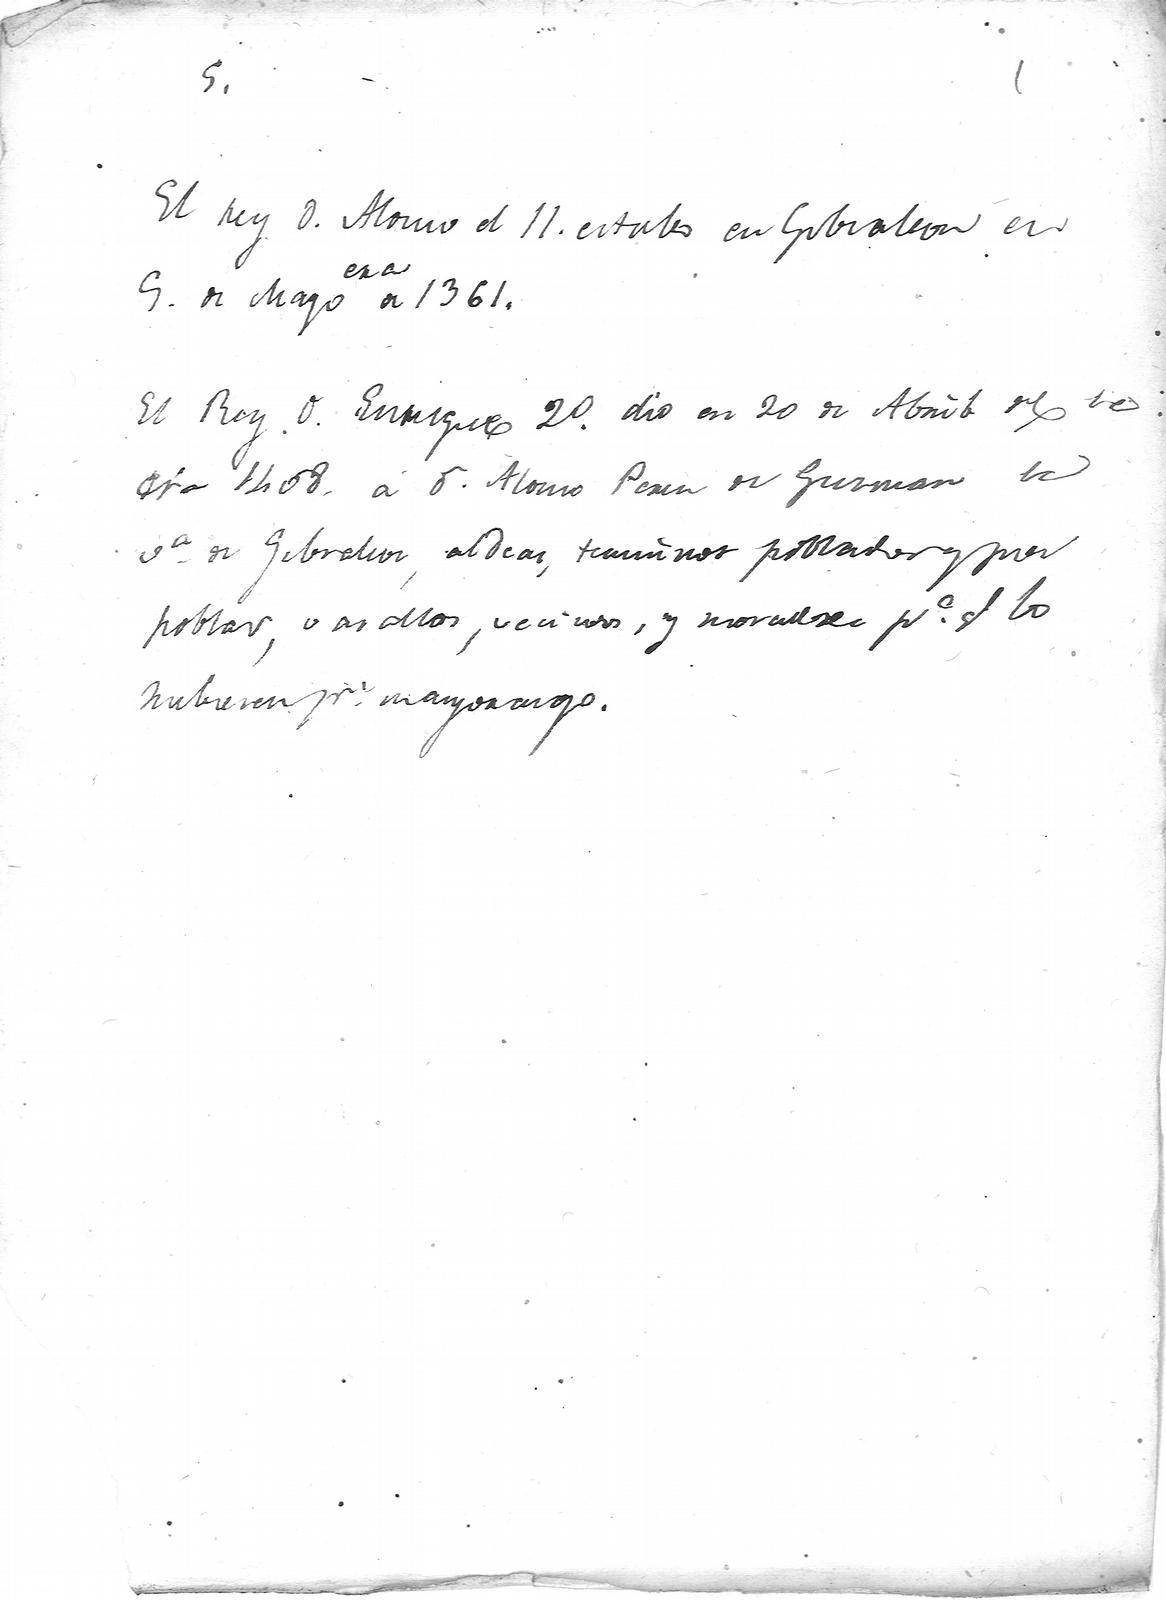 5.
El Rey D. Alonso el 11. estubo en Gibraleon en
5. de Mayo era de 1361.
El Rey D. Enrique 2º. dio en 20 de Abril de la
era 1408. a D. Alonso Perez de Guzman la
vª. de Gibraleon, aldeas, terminos poblados y por
poblar, vasallos, vecinos, y moradores pª. q lo
hubiesen pr. mayorazgo.